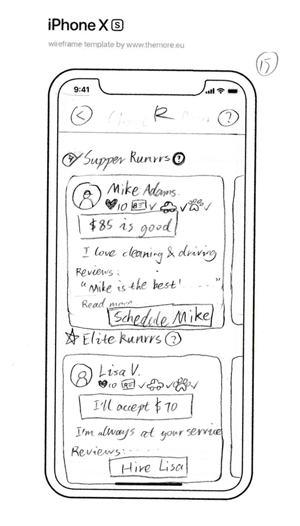 iPhone X S
wireframe template by www.themore.eu
15
9:41
< R ?
Supper Runrrs ?
Mike Adams
10 BT ✓ ✓ ✓
$85 is good
I love cleaning & driving
Reviews:
"Mike is the best! ......"
Read more
Schedule Mike
Elite Runrrs ?
Lisa V.
10 BT ✓ ✓ ✓
I'll accept $70
I'm always at your service
Reviews: ......
Hire Lisa